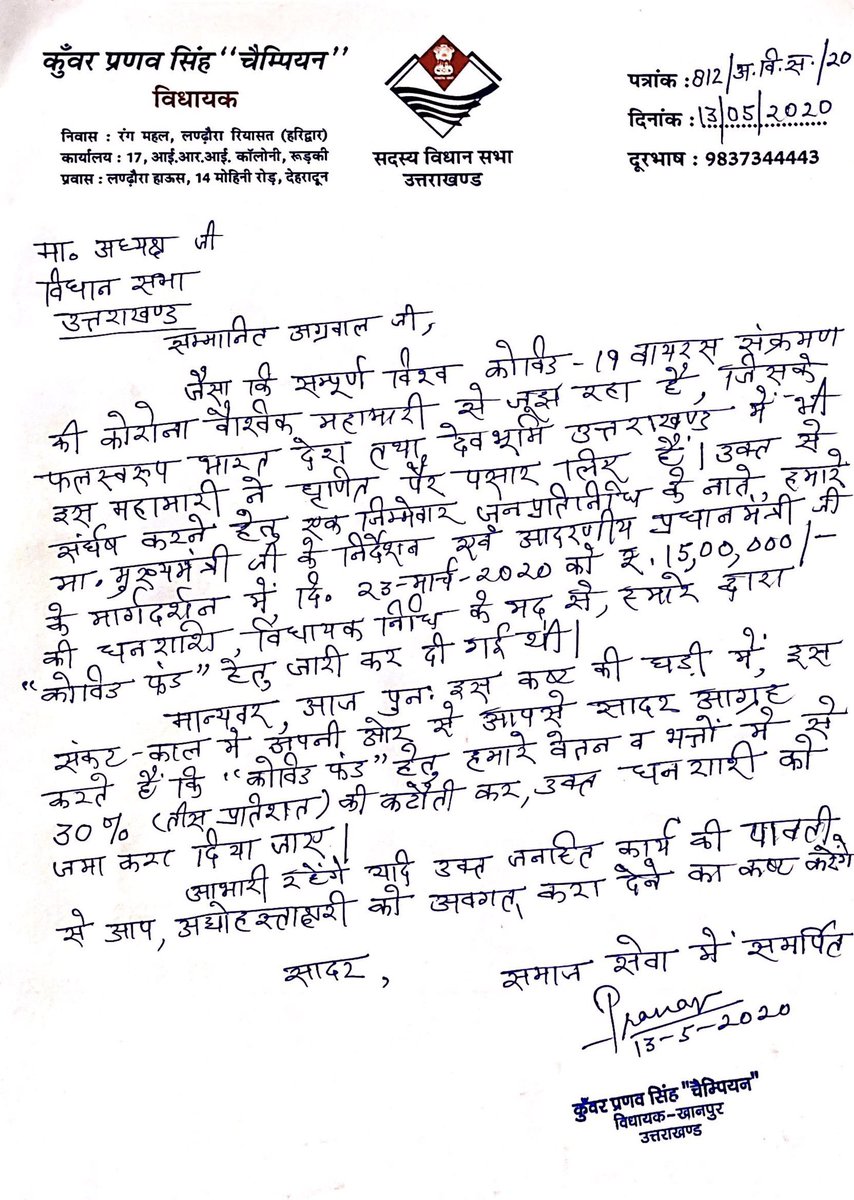 कुँवर प्रणव सिंह "चैम्पियन"
विधायक
निवास : रंग महल, लण्ढौरा रियासत (हरिद्वार)
कार्यालय : 17, आई.आर.आई. कॉलोनी, रूड़की
प्रवास : लण्ढौरा हाऊस, 14 मोहिनी रोड़, देहरादून
सदस्य विधान सभा
उत्तराखण्ड
पत्रांक : 812/अ.वि.स./20
दिनांक : 13/05/2020
दूरभाष : 9837344443
मा. अध्यक्ष जी
विधान सभा
उत्तराखण्ड
सम्मानित अग्रवाल जी,
जैसा कि सम्पूर्ण विश्व कोविड-19 वायरस संक्रमण
की कोरोना वैश्विक महामारी से जूझ रहा है, जिसके
फलस्वरूप भारत देश तथा देवभूमि उत्तराखण्ड में भी
इस महामारी ने घृणित पैर पसार लिए हैं। उक्त से
संर्घष करने हेतु एक जिम्मेवार जनप्रतिनिधि के नाते, हमारे
मा. मुख्यमंत्री जी के निर्देशन एवं आदरणीय प्रधानमंत्री जी
के मार्गदर्शन में, दि. 23-मार्च-2020 को रू. 15,00,000/-
की धनराशि, विधायक निधि के मद से, हमारे द्वारा
"कोविड फंड" हेतु जारी कर दी गई थी।
मान्यवर, आज पुनः इस कष्ट की घड़ी में, इस
संकट-काल में अपनी ओर से आपसे सादर आग्रह
करते हैं कि "कोविड फंड" हेतु हमारे वेतन व भत्तों में से
30% (तीस प्रतिशत) की कटौती कर, उक्त धनराशी को
जमा करा दिया जाए।
आभारी रहेंगे यदि उक्त जनहित कार्य की पावती
से आप, अधोहस्ताक्षरी को अवगत करा देने का कष्ट करेंगे
सादर,
समाज सेवा में समर्पित
Pranav
13-5-2020
कुँवर प्रणव सिंह "चैम्पियन"
विधायक-खानपुर
उत्तराखण्ड